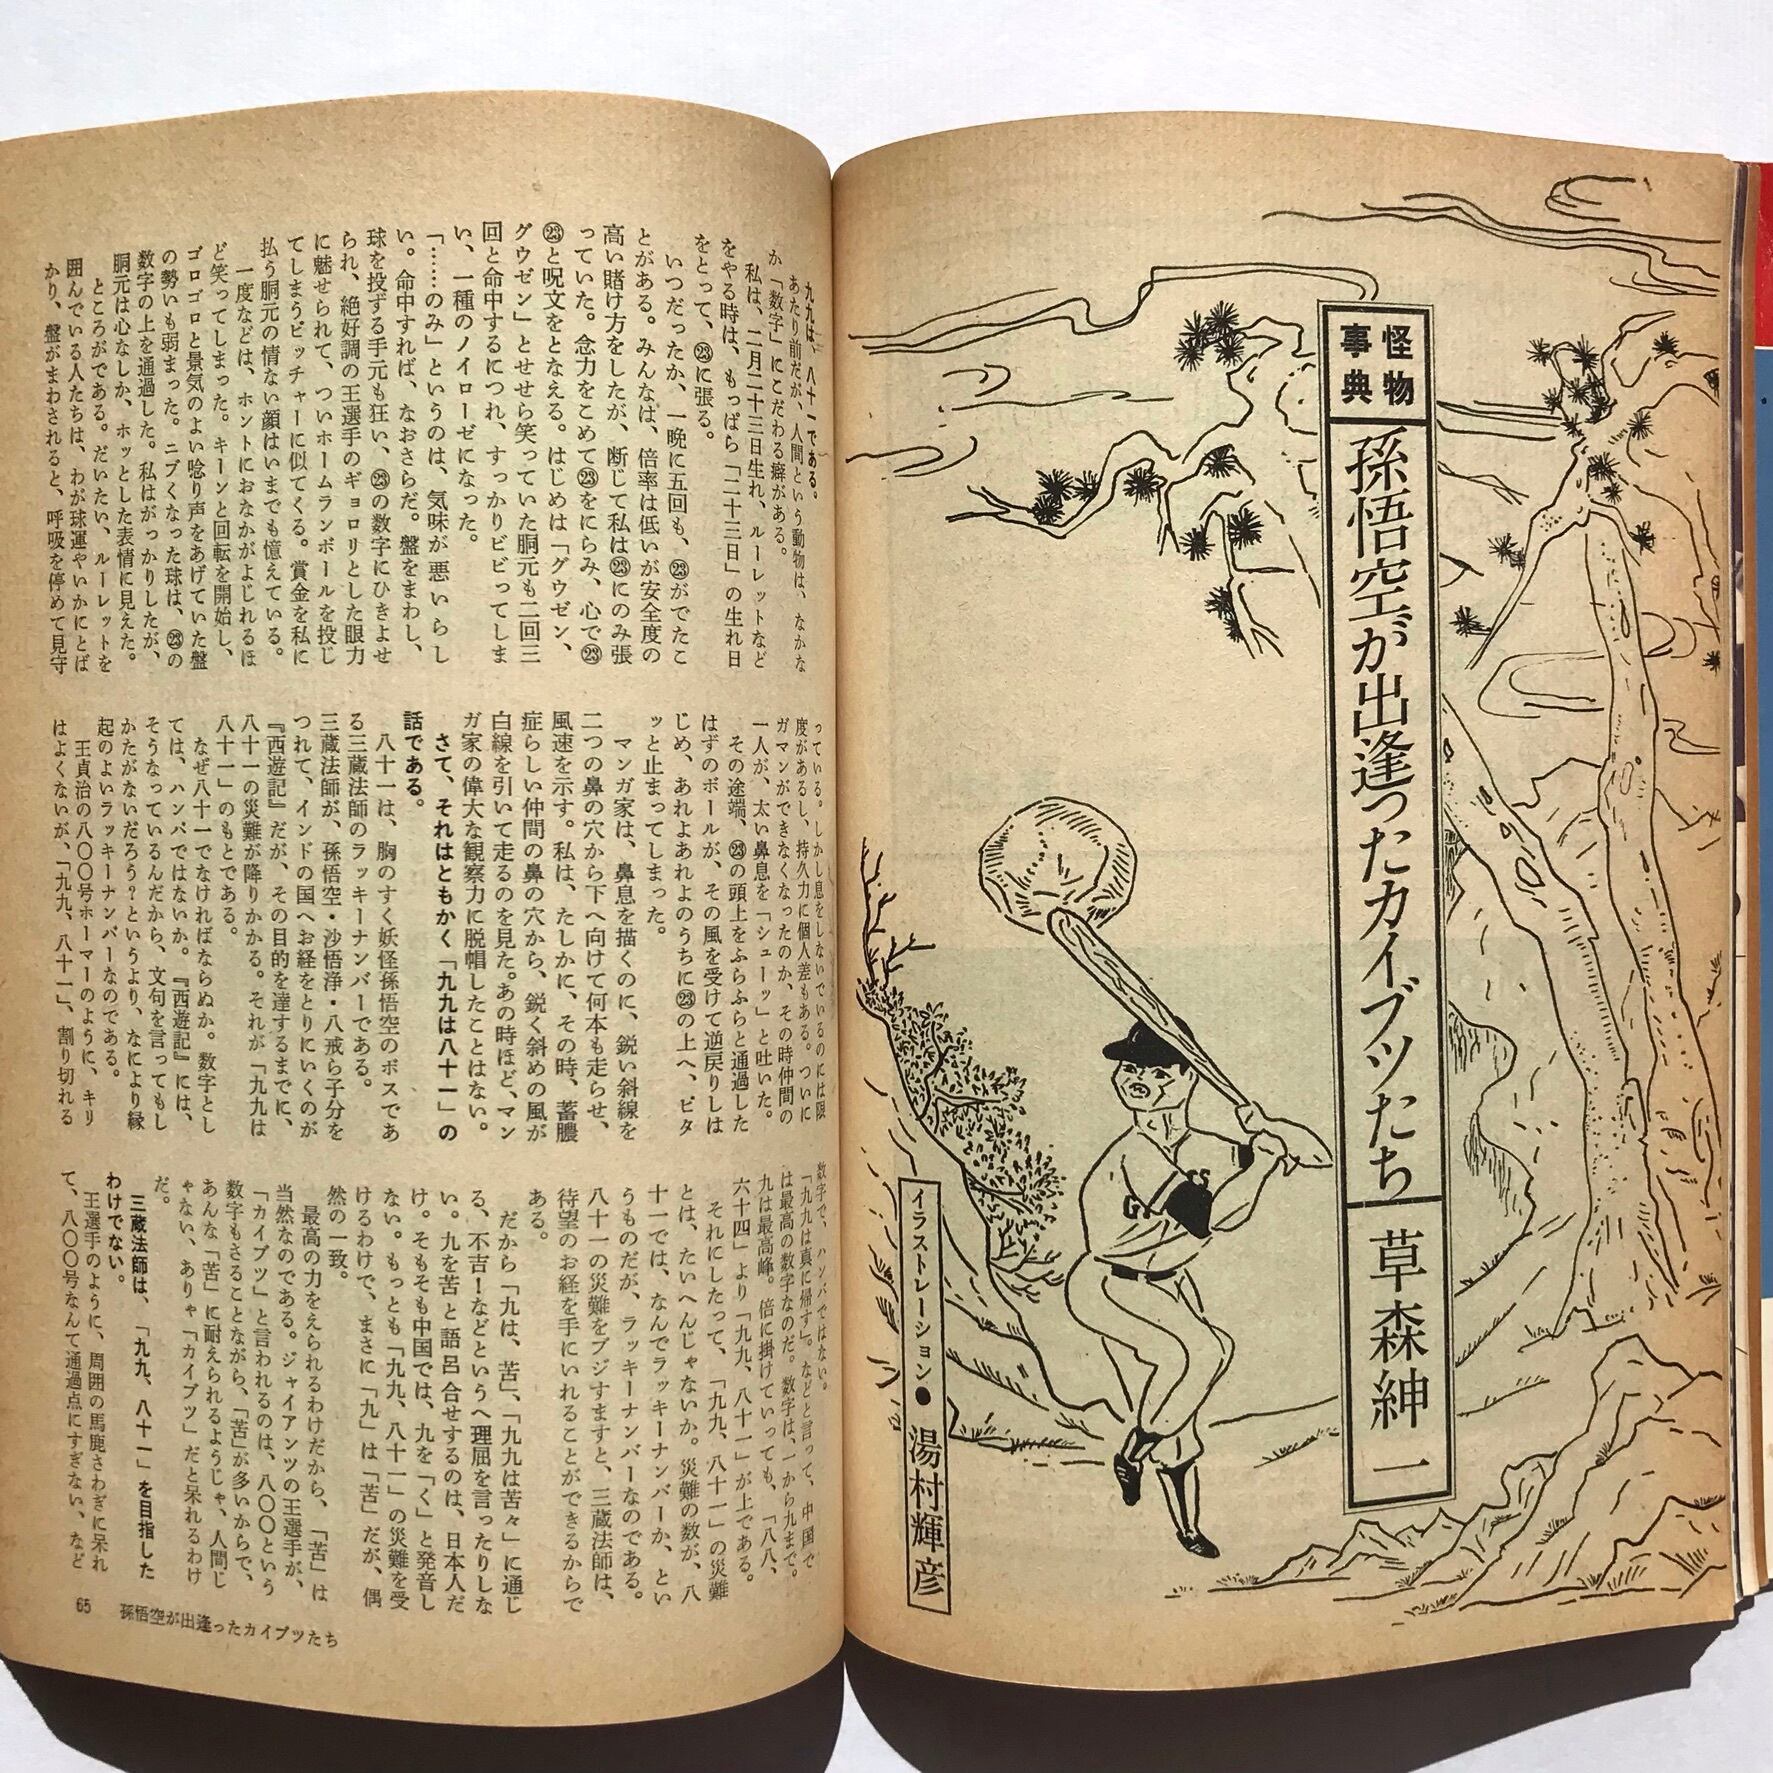 怪物
事典
孫悟空が出逢ったカイブツたち
草森紳一
イラストレーション●湯村輝彦
G
S
九九は、八十一である。
あたり前だが、人間という動物は、なかな
か「数字」にこだわる癖がある。
私は、二月二十三日生れ、ルーレットなど
をやる時は、もっぱら「二十三日」の生れ日
をとって、㉓に張る。
いつだったか、一晩に五回も、㉓がでたこ
とがある。みんなは、倍率は低いが安全度の
高い賭け方をしたが、断じて私は㉓にのみ張
っていた。念力をこめて㉓をにらみ、心で㉓
㉓と呪文をとなえる。はじめは「グウゼン、
グウゼン」とせせら笑っていた胴元も二回三
回と命中するにつれ、すっかりビビってしま
い、一種のノイローゼになった。
「……のみ」というのは、気味が悪いらし
い。命中すれば、なおさらだ。盤をまわし、
球を投ずる手元も狂い、㉓の数字にひきよせ
られ、絶好調の王選手のギョロリとした眼力
に魅せられて、ついホームランボールを投じ
てしまうピッチャーに似てくる。賞金を私に
払う胴元の情ない顔はいまでも憶えている。
一度などは、ホントにおなかがよじれるほ
ど笑ってしまった。キーンと回転を開始し、
ゴロゴロと景気のよい唸り声をあげていた盤
の勢いも弱まった。ニブくなった球は、㉓の
数字の上を通過した。私はがっかりしたが、
胴元は心なしか、ホッとした表情に見えた。
ところがである。だいたい、ルーレットを
囲んでいる人たちは、わが球運やいかにとば
かり、盤がまわされると、呼吸を停めて見守
っている。しかし息をしないでいるのには限
度があるし、持久力に個人差もある。ついに
ガマンができなくなったのか、その時仲間の
一人が、太い鼻息を「シューッ」と吐いた。
その途端、㉓の頭上をふらふらと通過した
はずのボールが、その風を受けて逆戻りしは
じめ、あれよあれよのうちに㉓の上へ、ピタ
ッと止まってしまった。
マンガ家は、鼻息を描くのに、鋭い斜線を
二つの鼻の穴から下へ向けて何本も走らせ、
風速を示す。私は、たしかに、その時、蓄膿
症らしい仲間の鼻の穴から、鋭く斜めの風が
白線を引いて走るのを見た。あの時ほど、マン
ガ家の偉大な観察力に脱帽したことはない。
さて、それはともかく「九九は八十一」の
話である。
八十一は、胸のすく妖怪孫悟空のボスであ
る三蔵法師のラッキーナンバーである。
三蔵法師が、孫悟空・沙悟浄・八戒ら子分を
つれて、インドの国へお経をとりにいくのが
『西遊記』だが、その目的を達するまでに、
八十一の災難が降りかかる。それが「九九は
八十一」のもとである。
なぜ八十一でなければならぬか。数字とし
ては、ハンパではないか。『西遊記』には、
そうなっているんだから、文句を言ってもし
かたがないだろう？というより、なにより縁
起のよいラッキーナンバーなのである。
王貞治の八〇〇号ホーマーのように、キリ
はよくないが、「九九、八十一」、割り切れる
数字で、ハンパではない。
「九九は真に帰す」。などと言って、中国で
は最高の数字なのだ。数字は、一から九まで。
九は最高峰。倍に掛けていっても、「八八、
六十四」より「九九、八十一」が上である。
それにしたって、「九九、八十一」の災難
とは、たいへんじゃないか。災難の数が、八
十一では、なんでラッキーナンバーか、とい
うものだが、ラッキーナンバーなのである。
八十一の災難をブジすますと、三蔵法師は、
待望のお経を手にいれることができるからで
ある。
だから「九は、苦」、「九九は苦々」に通じ
る、不吉！などというヘ理屈を言ったりしな
い。九を苦と語呂合せするのは、日本人だ
け。そもそも中国では、九を「く」と発音し
ない。もっとも「九九、八十一」の災難を受
けるわけで、まさに「九」は「苦」だが、偶
然の一致。
最高の力をえられるわけだから、「苦」は
当然なのである。ジャイアンツの王選手が、
「カイブツ」と言われるのは、八〇〇という
数字もさることながら、「苦」が多いからで、
あんな「苦」に耐えられるようじゃ、人間じ
ゃない、ありゃ「カイブツ」だと呆れるわけ
だ。
三蔵法師は、「九九、八十一」を目指した
わけでない。
王選手のように、周囲の馬鹿さわぎに呆れ
て、八〇〇号なんて通過点にすぎない、など
65 孫悟空が出逢ったカイブツたち